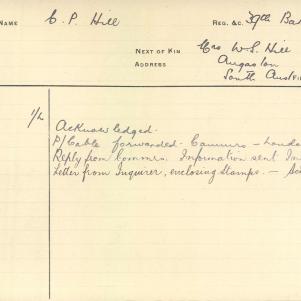 NAME C. P. Hill REG. &C. 39th Ba
NEXT OF KIN Mrs W. S. Hill
ADDRESS Angaston
South Aust
1/L
Acknowledged.
P/Cable forwarded - Commrs - Londo
Reply from Commrs. Information sent In
Letter from Inquirer, enclosing Stamps. -